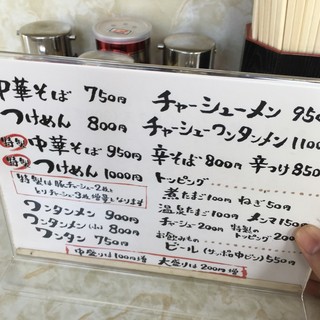 中華そば 750円
つけめん 800円
特製 中華そば 950円
特製 つけめん 1000円
特製は豚チャーシュー2枚と
とりチャーシュー3枚増量となります
ワンタンメン 900円
ワンタンメン(小) 800円
ワンタン 750円
中盛りは100円増 大盛りは200円増
チャーシューメン 950
チャーシューワンタンメン 1100
辛そば 800円 辛つけ 850
トッピング
煮たまご 100円 ねぎ 50円
温泉たまご 100円 メンマ 150円
チャーシュー 200円 特製のトッピング 200
お飲みもの
ビール(サッポロ中ビン) 550円